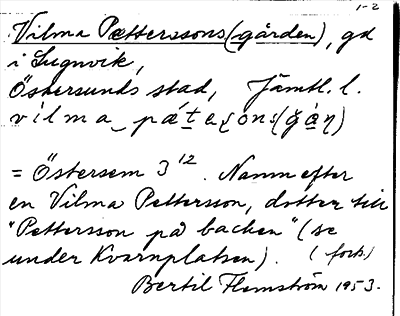 1-2
Vilma Petterssons(gården), gd
i Lugnvik,
Östersunds stad, Jämtl. l.
= Östersem 3¹². Namn efter
en Vilma Pettersson, dotter till
"Pettersson på backen" (se
under Kvarnplatsen). (forts.)
Bertil Flemström 1953.